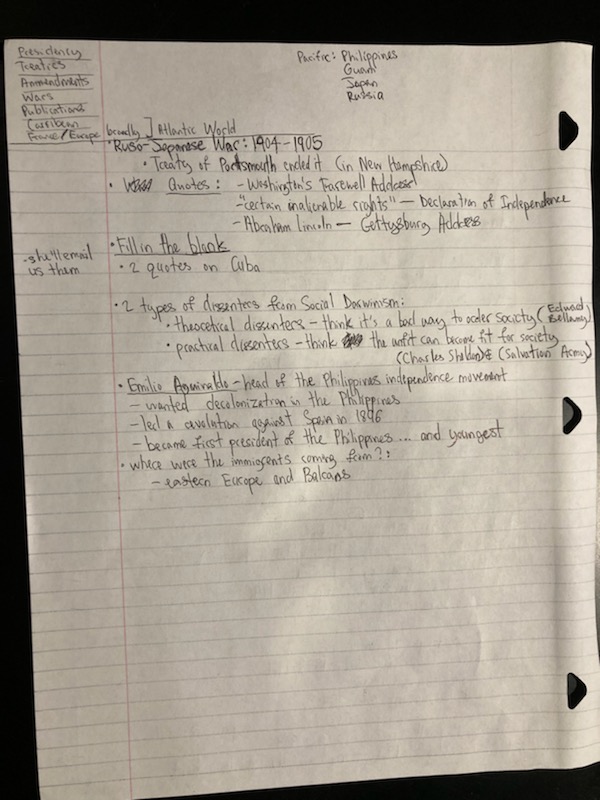 Presidency
Treaties
Ammendments
Wars
Publications
Carribean
France/Europe broadly ] Atlantic World
Pacific: Philippines
Guam
Japan
Russia
• Ruso-Japanese War: 1904-1905
• Treaty of Portsmouth ended it (in New Hampshire)
• Quotes: - Washington's Farewell Address
- "certain inalienable rights" - Declaration of Independence
- Abraham Lincoln - Gettysburg Address
• Fill in the blank
- she'll email us them
• 2 quotes on Cuba
• 2 types of dissenters from Social Darwinism:
• theoretical dissenters - think it's a bad way to order society (Edward Bellamy)
• practical dissenters - think the unfit can become fit for society
(Charles Sheldon) & (Salvation Army)
• Emilio Aguinaldo - head of the Philippines independence movement
- wanted decolonization in the Philippines
- led a revolution against Spain in 1896
- became first president of the Philippines... and youngest
• where were the immigrents coming from?:
- eastern Europe and Balcans